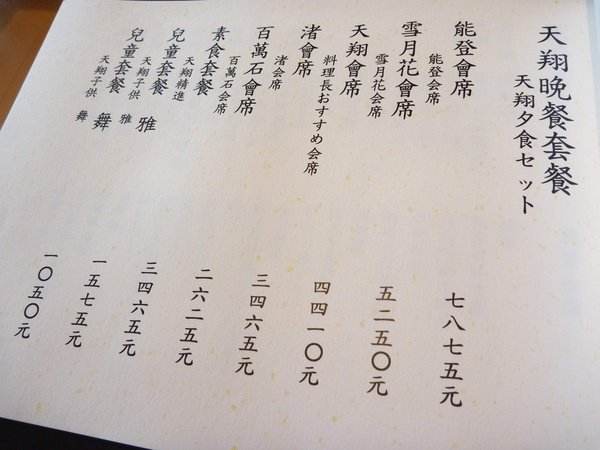 天翔晚餐套餐
天翔夕食セット
能登會席
能登会席
七八七五元
雪月花會席
雪月花会席
五二五〇元
天翔會席
料理長おすすめ会席
四四一〇元
渚會席
渚会席
三四六五元
百萬石會席
百萬石会席
二六二五元
素食套餐
天翔精進
三四六五元
兒童套餐 雅
天翔子供 雅
一五七五元
兒童套餐 舞
天翔子供 舞
一〇五〇元